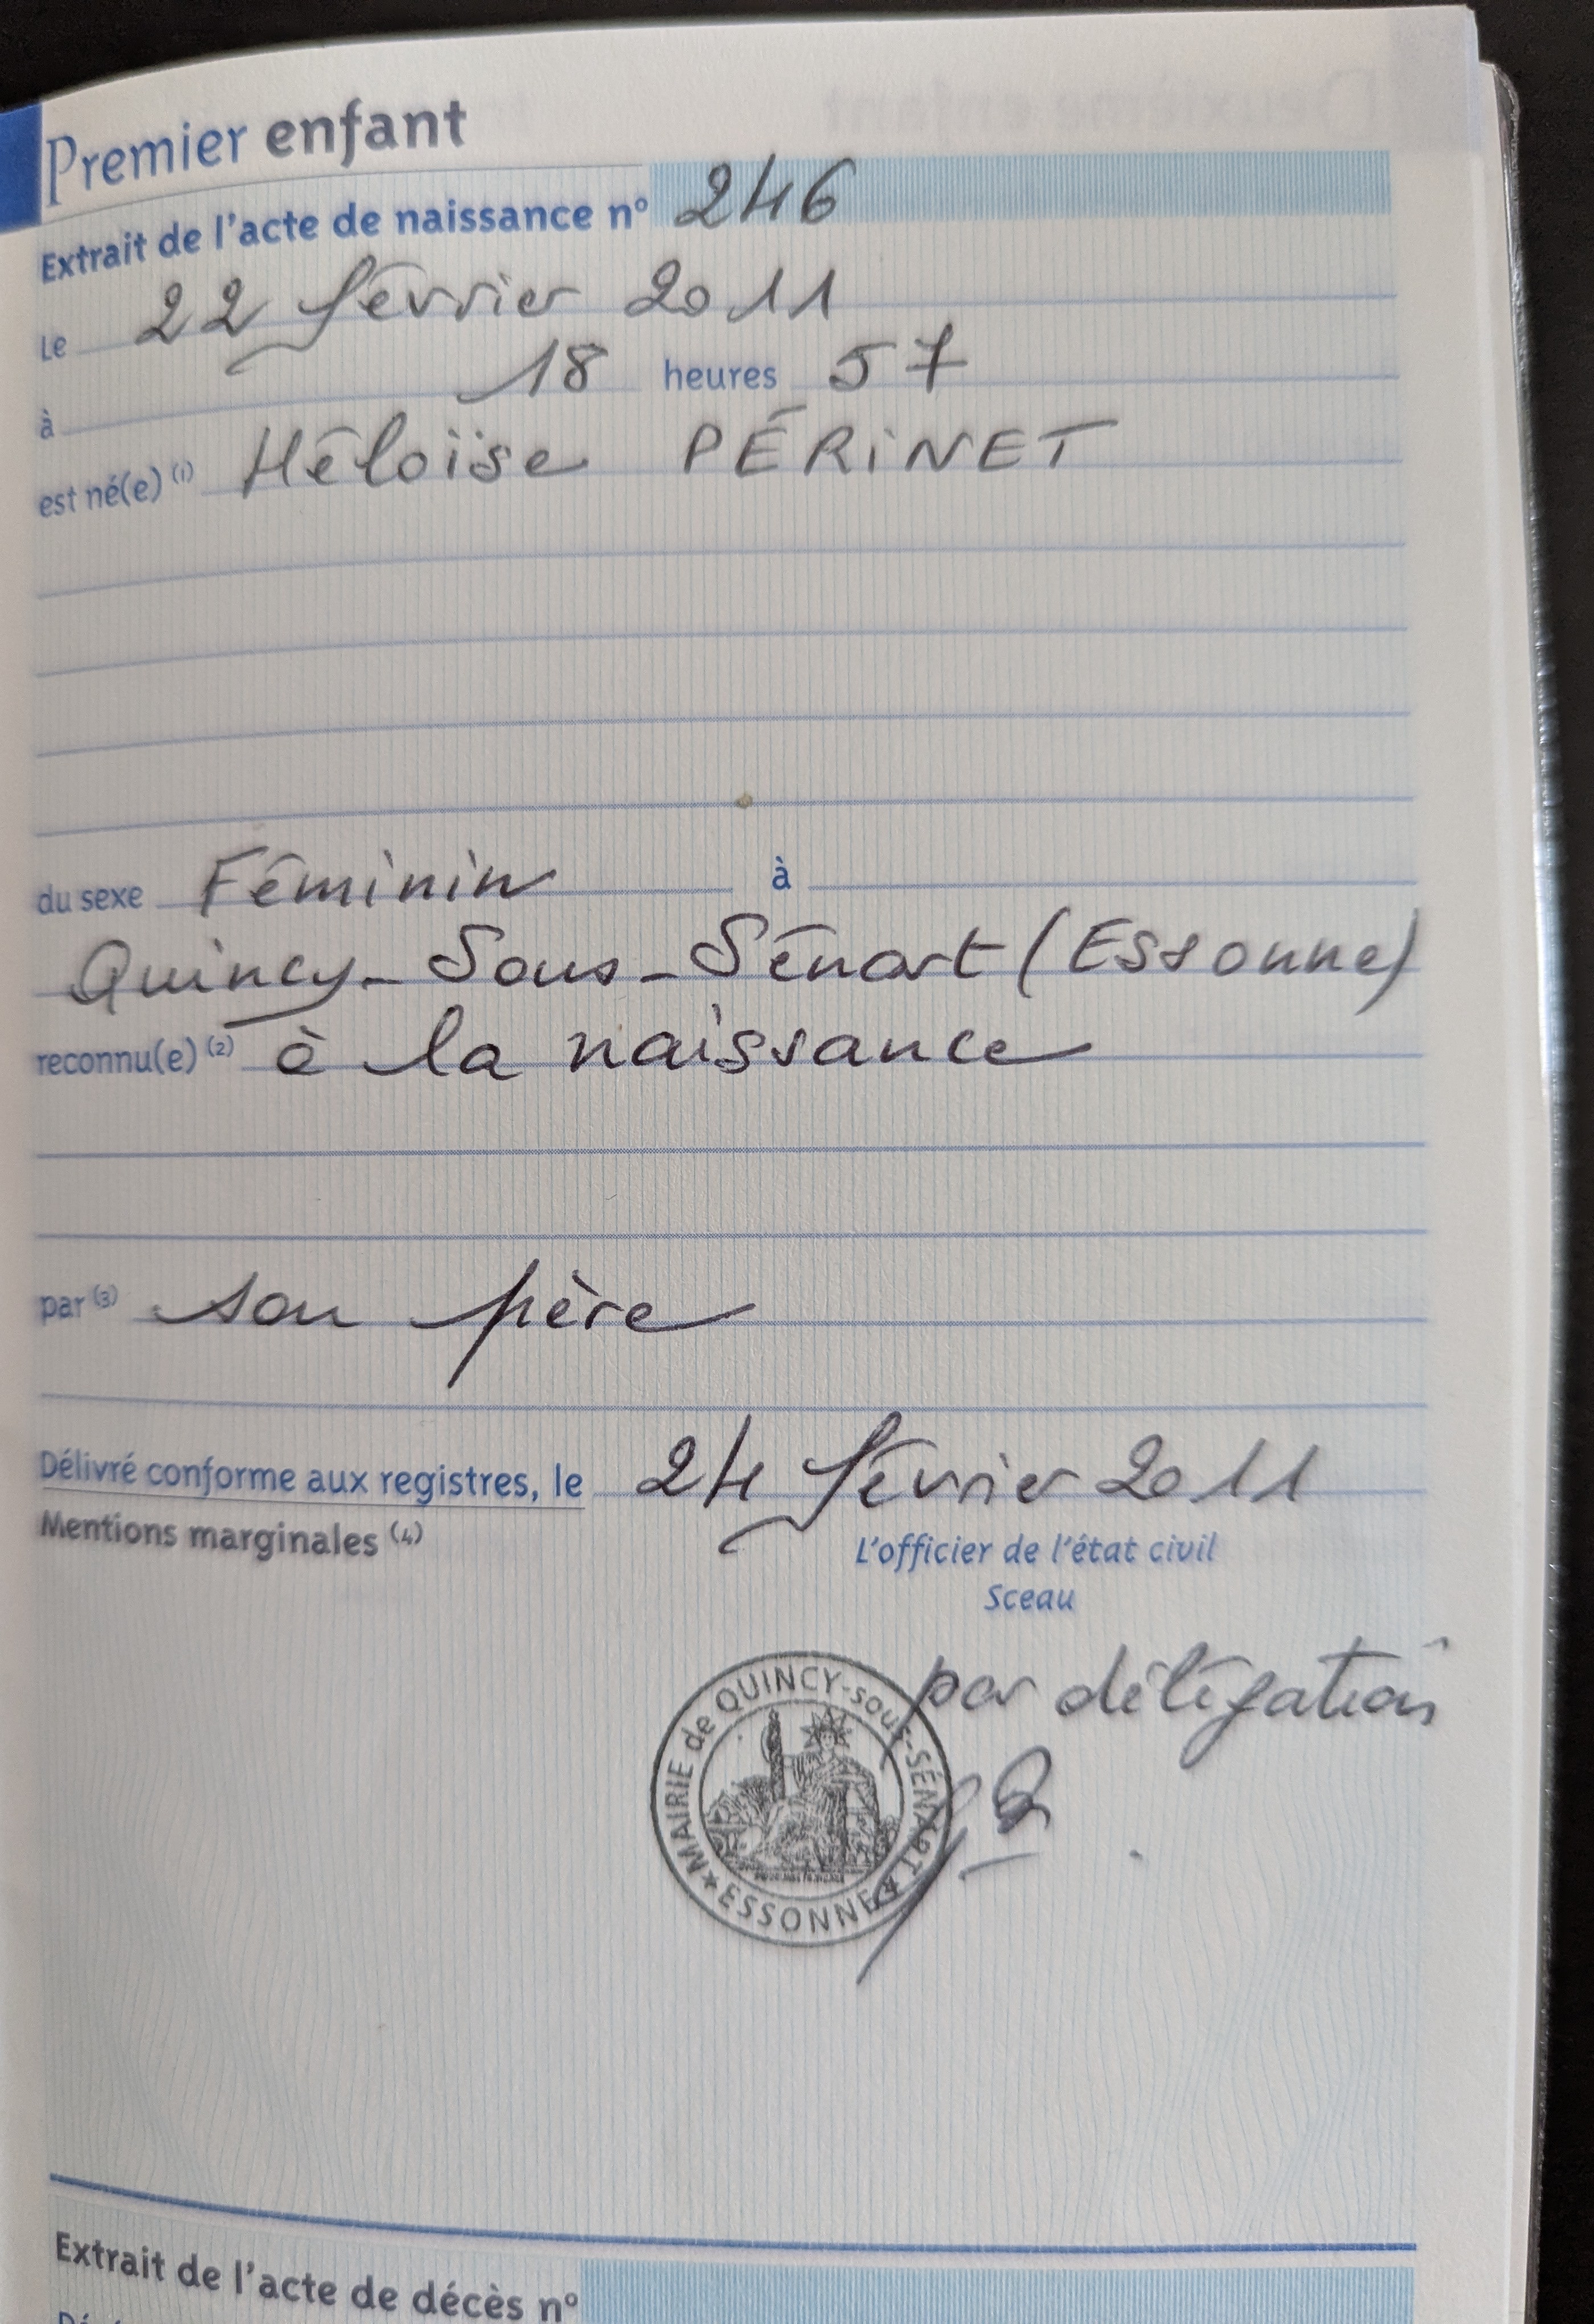 Premier enfant
Extrait de l'acte de naissance n° 246
Le 22 février 2011
à 18 heures 57
est né(e) (1) Héloïse PÉRiNET
du sexe Féminin à
Quincy-Sous-Sénart (Essonne)
reconnu(e) (2) à la naissance
par (3) son père
Délivré conforme aux registres, le 24 février 2011
Mentions marginales (4)
L'officier de l'état civil
Sceau
par délégation
MAIRIE de QUINCY-sous-SÉNART
★ ESSONNE ★
Extrait de l'acte de décès n°